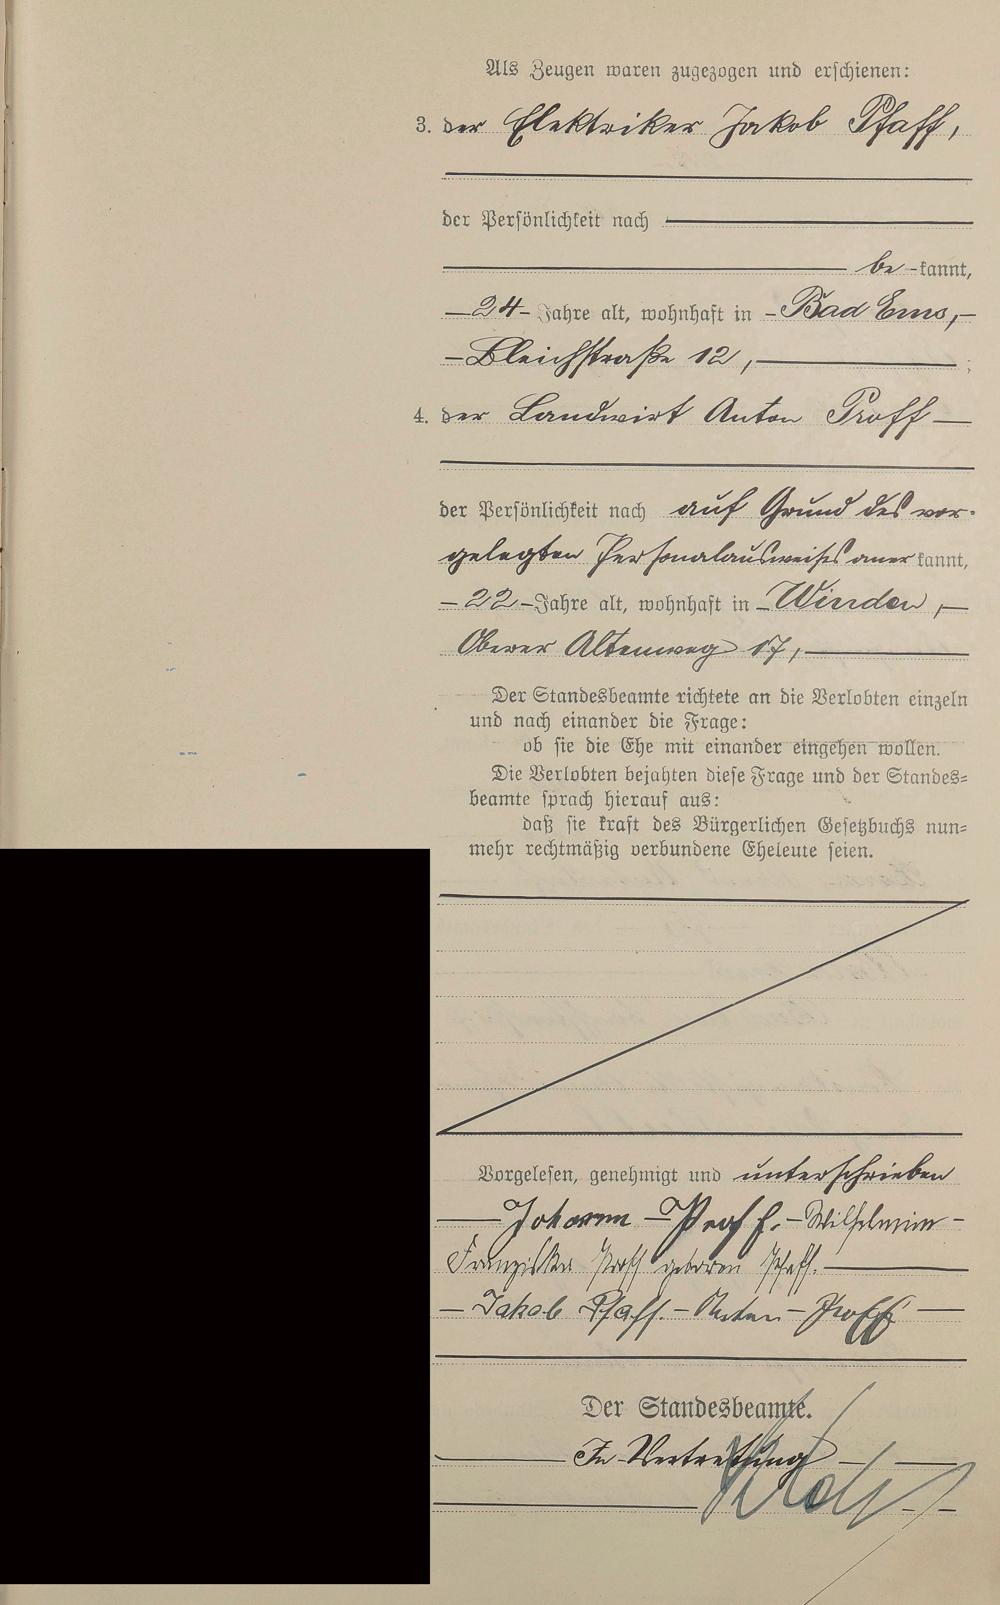 Als Zeugen waren zugezogen und erschienen:
3. der Elektriker Jakob Pfaff,
der Persönlichkeit nach
be-kannt,
24 Jahre alt, wohnhaft in Bad Ems,
Bleichstraße 12,;
4. der Landwirt Anton Proff
der Persönlichkeit nach auf Grund des vor-
gelegten Personalausweises anerkannt,
22 Jahre alt, wohnhaft in Winden,
Oberer Altenweg 17,
Der Standesbeamte richtete an die Verlobten einzeln
und nach einander die Frage:
ob sie die Ehe mit einander eingehen wollen.
Die Verlobten bejahten diese Frage und der Standes=
beamte sprach hierauf aus:
daß sie kraft des Bürgerlichen Gesetzbuchs nun=
mehr rechtmäßig verbundene Eheleute seien.
Vorgelesen, genehmigt und unterschrieben
Johann Proff. Wilhelmine
Franziska Proff geboren Pfaff.
Jakob Pfaff. Anton Proff
Der Standesbeamte.
In Vertretung